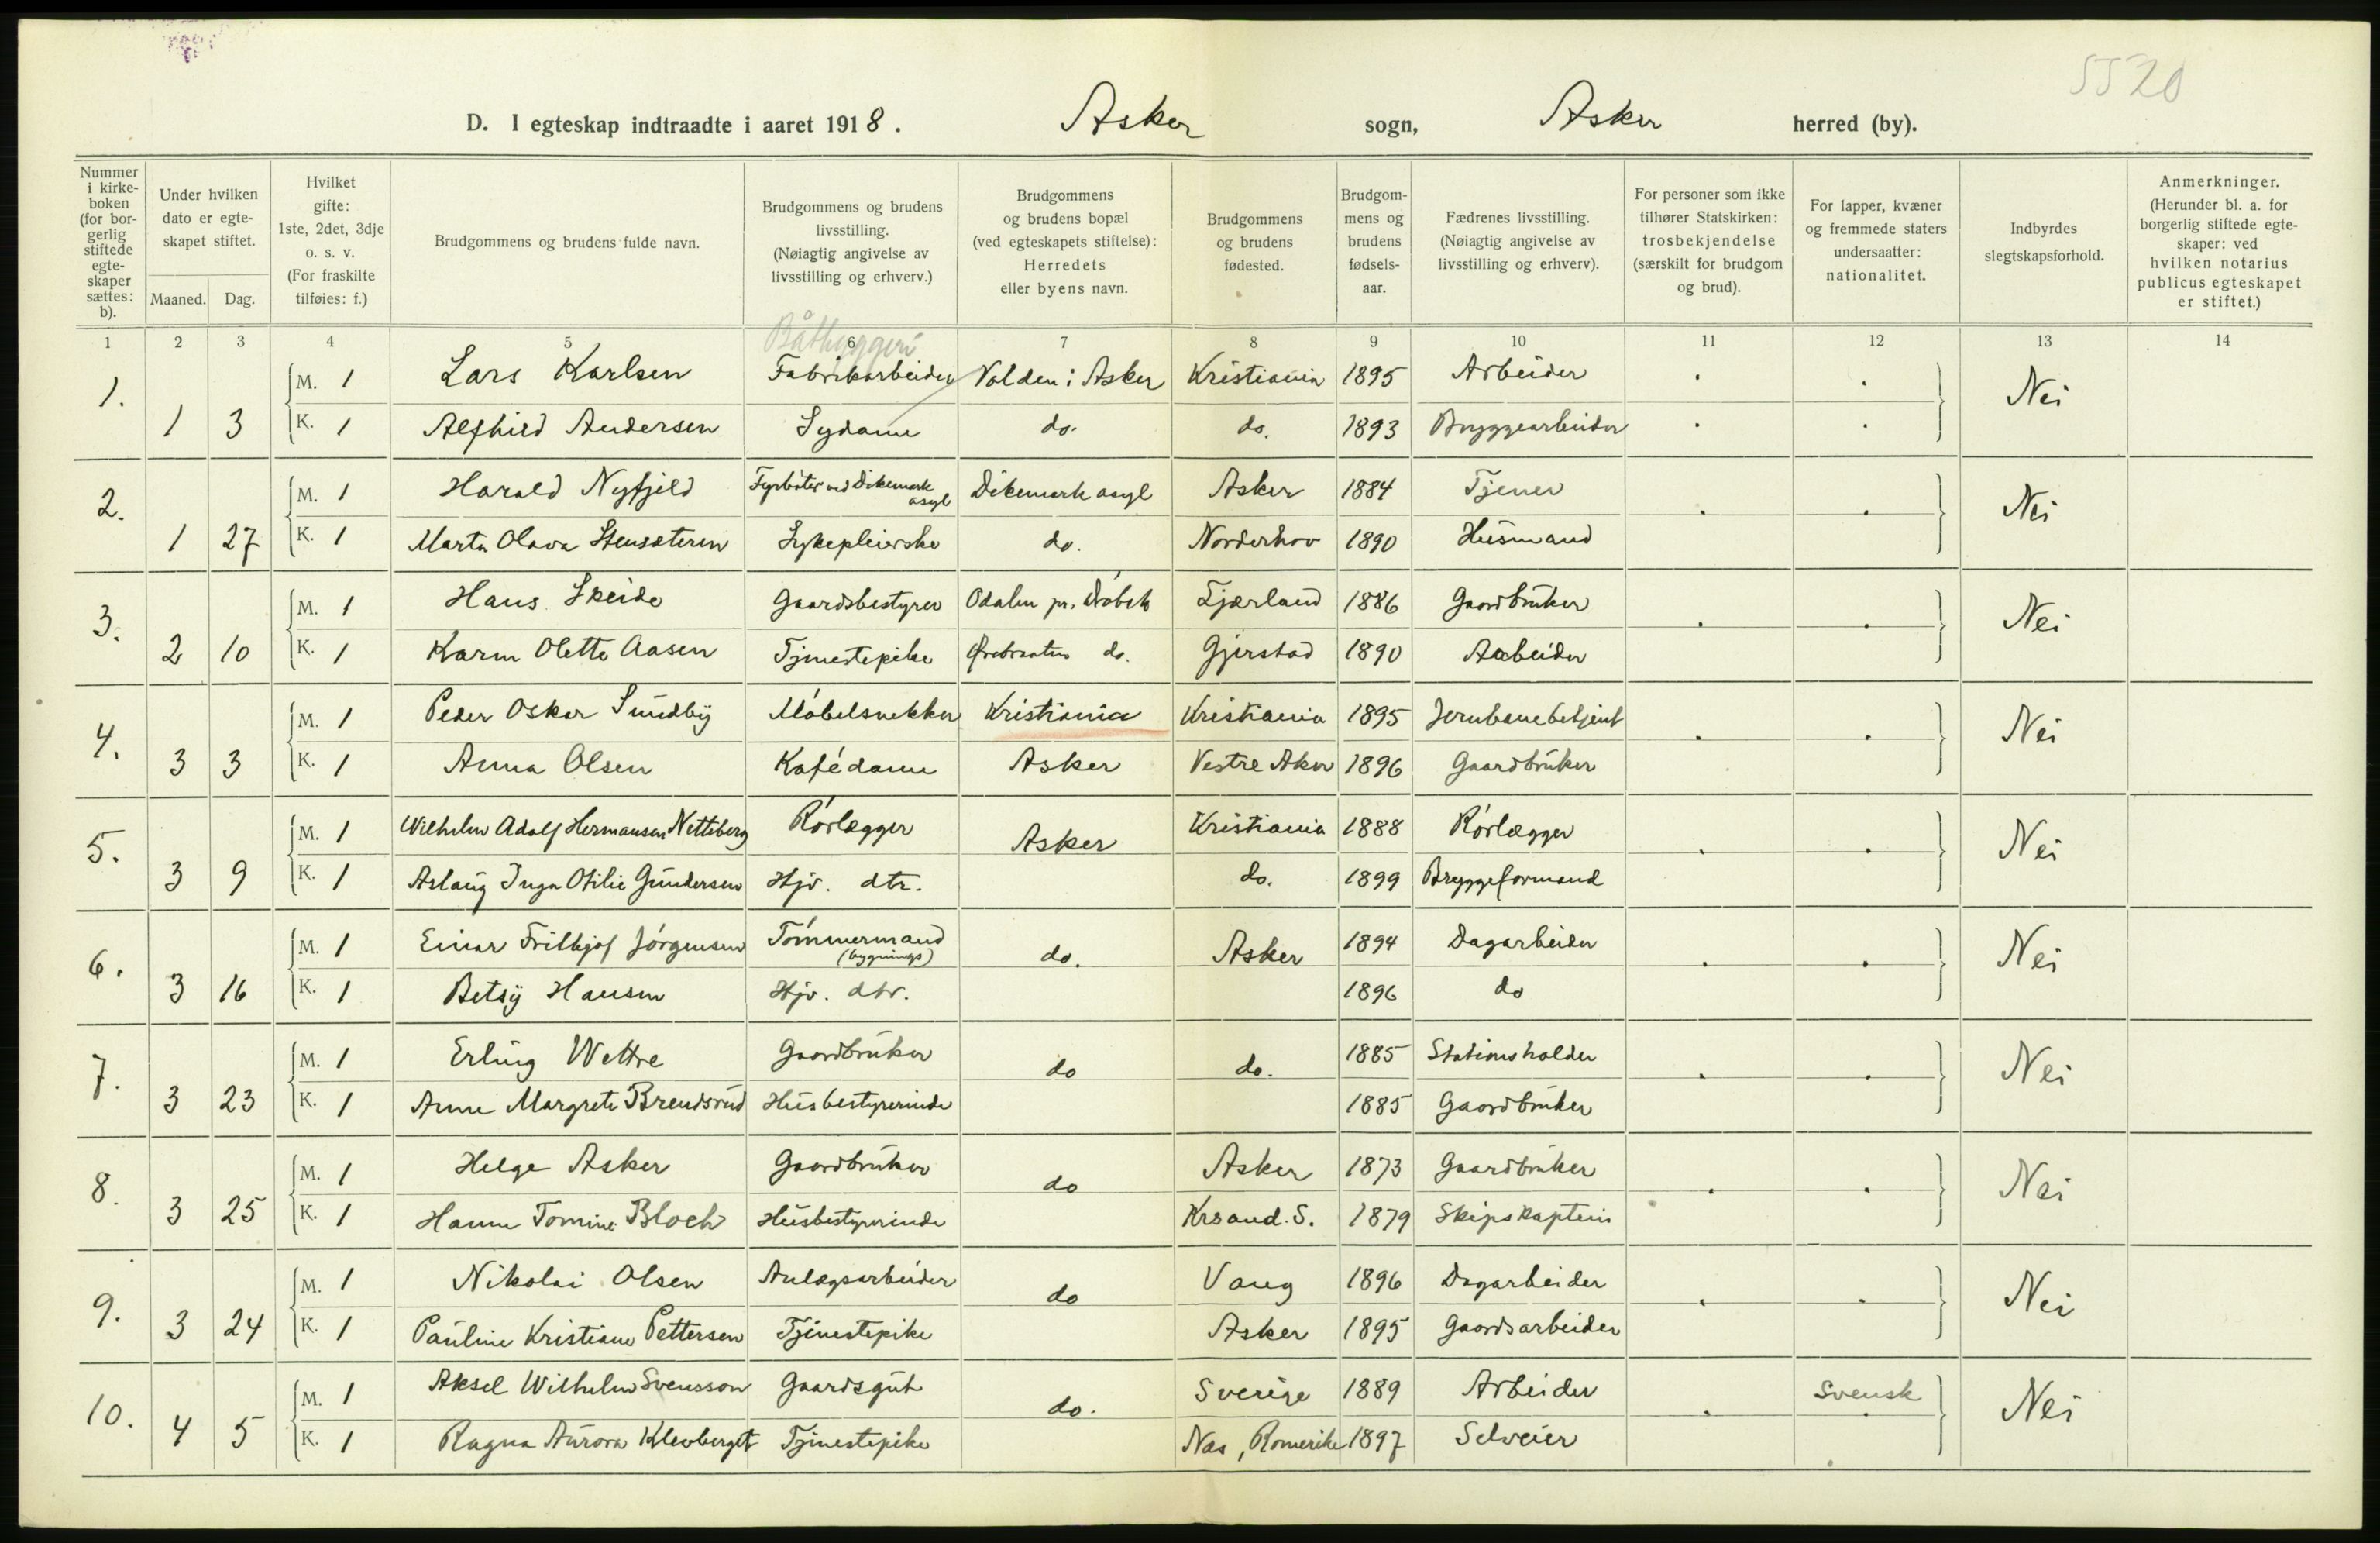 5520
D. I egteskap indtraadte i aaret 1918. Asker sogn, Asker herred (by).
Nummer i kirkeboken (for borgerlig stiftede egteskaper sættes: b).
Under hvilken dato er egteskapet stiftet. Maaned. Dag.
Hvilket gifte: 1ste, 2det, 3dje o. s. v. (For fraskilte tilføies: f.)
Brudgommens og brudens fulde navn.
Brudgommens og brudens livsstilling. (Nøiagtig angivelse av livsstilling og erhverv.)
Brudgommens og brudens bopæl (ved egteskapets stiftelse): Herredets eller byens navn.
Brudgommens og brudens fødested.
Brudgommens og brudens fødselsaar.
Fædrenes livsstilling. (Nøiagtig angivelse av livsstilling og erhverv).
For personer som ikke tilhører Statskirken: trosbekjendelse (særskilt for brudgom og brud).
For lapper, kvæner og fremmede staters undersaatter: nationalitet.
Indbyrdes slegtskapsforhold.
Anmerkninger. (Herunder bl. a. for borgerlig stiftede egteskaper: ved hvilken notarius publicus egteskapet er stiftet.)
1 2 3 4 5 6 7 8 9 10 11 12 13 14
Båtbyggeri
1. M. 1 Lars Karlsen Fabrikarbeider Valden i Asker Kristiania 1895 Arbeider . . Nei
1 3 K. 1 Alfhild Andersen Sydame do. do. 1893 Bryggearbeider . .
2. M. 1 Harald Nyfjeld Fyrbøter ved Dikemark asyl Dikemark asyl Asker 1884 Tjener . . Nei
1 27 K. 1 Marta Olava Stensæteren Sykepleierske do. Norderhov 1890 Husmand
3. M. 1 Hans Skeide Gaardsbestyrer Odalen pr. Drøbak Fjærland 1886 Gaardbruker . . Nei
2 10 K. 1 Karen Olette Aasen Tjenestepike do. Gjerstad 1890 Arbeider
4. M. 1 Peder Oskar Sundby Møbelsnekker Kristiania Kristiania 1895 Jernbanebetjent . . Nei
3 3 K. 1 Anna Olsen Kafédame Asker Vestre Aker 1896 Gaardbruker
5. M. 1 Wilhelm Adolf Hermansen Netteberg Rørlægger Asker Kristiania 1888 Rørlægger . . Nei
3 9 K. 1 Aslaug Inga Otilie Gundersen Hjv. dtr. do. 1899 Bryggeformand
6. M. 1 Einar Frithjof Jørgensen Tømmermand (bygnings) do. Asker 1894 Dagarbeider . . Nei
3 16 K. 1 Betsy Hansen Hjv. dtr. 1896 do
7. M. 1 Erling Wettre Gaardbruker do do. 1885 Stationsholder . . Nei
3 23 K. 1 Anne Margrete Brendsrud Husbestyrerinde 1885 Gaardbruker
8. M. 1 Helge Asker Gaardbruker do Asker 1873 Gaardbruker . . Nei
3 25 K. 1 Hanne Tomine Bloch Husbestyrerinde Krsand. S. 1879 Skipskaptein
9. M. 1 Nikolai Olsen Anlægsarbeider do Vang 1896 Dagarbeider . . Nei
3 24 K. 1 Pauline Kristiane Pettersen Tjenestepike Asker 1895 Gaardsarbeider
10. M. 1 Aksel Wilhelm Svensson Gaardsgut do. Sverige 1889 Arbeider . Svensk Nei
4 5 K. 1 Ragna Aurora Klevberget Tjenestepike Næs, Romerike 1897 Selveier .